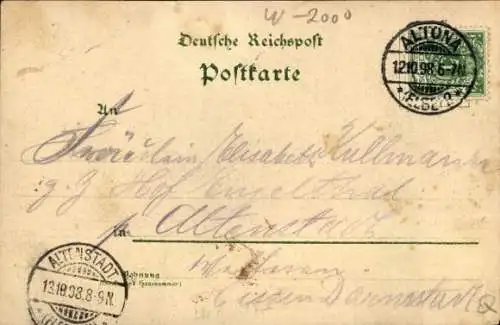 W-2000
Deutsche Reichspost
Postkarte
ALTONA
12.10.98.6-7N.
*(ELBE) 2*
An
Fräulein Elisabeth Kullmann
z. Z. Hof Engelthal
in Altenstadt
ALTENSTADT
13.10.98.8-9N.
Wohnung
Hessen Darmstadt